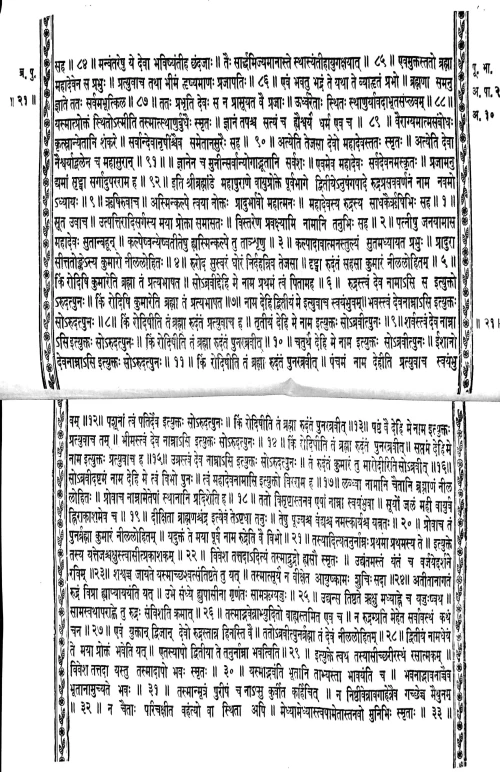 ब्र. पु.
॥ २१ ॥
सह ॥ ८४ ॥ मन्वंतरेषु ये देवा भविष्यंतीह छंदजाः ॥ तैः सार्द्धमिज्यमानास्ते स्थास्यंतीहायुगक्षयात् ॥ ८५ ॥ एवमुक्तस्ततो ब्रह्मा
महादेवेन स प्रभुः ॥ प्रत्युवाच तथा भीमं हृष्यमाणः प्रजापतिः ॥ ८६ ॥ एवं भवतु भद्रं ते यथा ते व्याहृतं प्रभो ॥ ब्रह्मणा समनु
ज्ञाते ततः सर्वमभूत्किल ॥ ८७ ॥ ततः प्रभृति देवः स न प्रासूयत वै प्रजाः ॥ ऊर्ध्वरेताः स्थितः स्थाणुर्यावदाभूतसंप्लवम् ॥ ८८ ॥
यस्मात्प्रोक्तं स्थितोऽस्मीति तस्मात्स्थाणुर्बुधैः स्मृतः ॥ ज्ञानं तपश्च सत्यं च ह्यैश्वर्यं धर्म एव च ॥ ८९ ॥ वैराग्यमात्मसंबोधः
कृत्स्नान्येतानि शंकरे ॥ सर्वान्देवानृषींश्चैव समेतानसुरैः सह ॥ ९० ॥ अत्येति तेजसा देवो महादेवस्ततः स्मृतः ॥ अत्येति देवा
नैश्वर्याद्बलेन च महासुरान् ॥ ९१ ॥ ज्ञानेन च मुनीन्सर्वान्योगाद्भूतानि सर्वशः ॥ एवमेव महादेवः सर्वदेवनमस्कृतः ॥ प्रजामनु
द्यमां सृष्ट्वा सर्गादुपरराम ह ॥ ९२ ॥ इति श्रीब्रह्मांडे महापुराणे वायुप्रोक्ते पूर्वभागे द्वितीयेऽनुषंगपादे रुद्रप्रसववर्णनं नाम नवमो
ऽध्यायः ॥ ९ ॥ ऋषिरुवाच ॥ अस्मिन्कल्पे त्वया नोक्तः प्रादुर्भावो महात्मनः ॥ महादेवस्य रुद्रस्य साधकैर्ऋषिभिः सह ॥ १ ॥
सूत उवाच ॥ उत्पत्तिरादिसर्गस्य मया प्रोक्ता समासतः ॥ विस्तरेण प्रवक्ष्यामि नामानि तनुभिः सह ॥ २ ॥ पत्नीषु जनयामास
महादेवः सुतान्बहून् ॥ कल्पेष्वन्येष्वतीतेषु ह्यस्मिन्कल्पे तु ताञ्शृणु ॥ ३ ॥ कल्पादावात्मनस्तुल्यं सुतमध्यायत प्रभुः ॥ प्रादुरा
सीत्ततोंऽकेऽस्य कुमारो नीललोहितः ॥ ४ ॥ रुरोद सुस्वरं घोरं निर्दहन्निव तेजसा ॥ दृष्ट्वा रुदंतं सहसा कुमारं नीललोहितम् ॥ ५ ॥
किं रोदिषि कुमारेति ब्रह्मा तं प्रत्यभाषत ॥ सोऽब्रवीद्देहि मे नाम प्रथमं त्वं पितामह ॥ ६ ॥ रुद्रस्त्वं देव नामाऽसि स इत्युक्तो
ऽरुदत्पुनः ॥ किं रोदिषि कुमारेति ब्रह्मा तं प्रत्यभाषत ॥ ७ ॥ नाम देहि द्वितीयं मे इत्युवाच स्वयंभुवम् ॥ भवस्त्वं देव नाम्नाऽसि इत्युक्तः
सोऽरुदत्पुनः ॥ ८ ॥ किं रोदिषीति तं ब्रह्मा रुदंतं प्रत्युवाच ह ॥ तृतीयं देहि मे नाम इत्युक्तः सोऽब्रवीत्पुनः ॥ ९ ॥ शर्वस्त्वं देव नाम्ना
ऽसि इत्युक्तः सोऽरुदत्पुनः ॥ किं रोदिषीति तं ब्रह्मा रुदंतं पुनरब्रवीत् ॥ १० ॥ चतुर्थं देहि मे नाम इत्युक्तः सोऽब्रवीत्पुनः ॥ ईशानो
देवनाम्नाऽसि इत्युक्तः सोऽरुदत्पुनः ॥ ११ ॥ किं रोदिषीति तं ब्रह्मा रुदंतं पुनरब्रवीत् ॥ पंचमं नाम देहीति प्रत्युवाच स्वयंभु
पू. भा.
अ. पा. २
अ. १०
॥ २१ ॥
वम् ॥ १२ ॥ पशूनां त्वं पतिर्देव इत्युक्तः सोऽरुदत्पुनः ॥ किं रोदिषीति तं ब्रह्मा रुदंतं पुनरब्रवीत् ॥ १३ ॥ षष्ठं वै देहि मे नाम इत्युक्तः
प्रत्युवाच तम् ॥ भीमस्त्वं देव नाम्नाऽसि इत्युक्तः सोऽरुदत्पुनः ॥ १४ ॥ किं रोदिषीति तं ब्रह्मा रुदंतं पुनरब्रवीत् ॥ सप्तमं देहि मे
नाम इत्युक्तः प्रत्युवाच ह ॥ १५ ॥ उग्रस्त्वं देव नाम्नाऽसि इत्युक्तः सोऽरुदत्पुनः ॥ तं रुदंतं कुमारं तु मारोदीरिति सोऽब्रवीत् ॥ १६ ॥
सोऽब्रवीदष्टमं नाम देहि मे त्वं विभो पुनः ॥ त्वं महादेवनामासि इत्युक्तो विरराम ह ॥ १७ ॥ लब्ध्वा नामानि चैतानि ब्रह्माणं नील
लोहितः ॥ प्रोवाच नाम्नामेतेषां स्थानानि प्रदिशेति ह ॥ १८ ॥ ततो विसृष्टास्तनव एषां नाम्ना स्वयंभुवा ॥ सूर्यो जलं मही वायुर्व
ह्निराकाशमेव च ॥ १९ ॥ दीक्षिता ब्राह्मणश्चंद्र इत्येवं तेऽष्टधा तनुः ॥ तेषु पूज्यश्च वंद्यश्च नमस्कार्यश्च यत्नतः ॥ २० ॥ प्रोवाच तं
पुनर्ब्रह्मा कुमारं नीललोहितम् ॥ यदुक्तं ते मया पूर्वं नाम रुद्रेति वै विभो ॥ २१ ॥ तस्यादित्यतनुर्नाम्नः प्रथमा प्रथमस्य ते ॥ इत्युक्ते
तस्य यत्तेजश्चक्षुस्त्वासीत्प्रकाशकम् ॥ २२ ॥ विवेश तत्तदाऽदित्यं तस्माद्रुद्रो ह्यसौ स्मृतः ॥ उद्यंतमस्तं यंतं च वर्जयेद्दर्शने
रविम् ॥ २३ ॥ शश्वच्च जायते यस्माच्छश्वत्संतिष्ठते तु यत् ॥ तस्मात्सूर्यं न वीक्षेत आयुष्कामः शुचिः सदा ॥ २४ ॥ अतीतानागतं
रुद्रं विप्रा ह्याप्याययंति यत् ॥ उभे संध्ये ह्युपासीना गृणंतः सामऋग्यजुः ॥ २५ ॥ उद्यन्स तिष्ठते ऋक्षु मध्याह्ने च यजुःष्वथ ॥
सामस्वथापराह्ने तु रुद्रः संविशति क्रमात् ॥ २६ ॥ तस्माद्भवेन्नाभ्युदितो बाह्यस्तमित एव च ॥ न रुद्रम्प्रति मेहेत सर्वावस्थं कथं
चन ॥ २७ ॥ एवं युक्तान् द्विजान् देवो रुद्रस्तान्न हिनस्ति वै ॥ ततोऽब्रवीत्पुनर्ब्रह्मा तं देवं नीललोहितम् ॥ २८ ॥ द्वितीयं नामधेयं
ते मया प्रोक्तं भवेति यत् ॥ एतस्यापो द्वितीया ते तनुर्नाम्ना भवत्विति ॥ २९ ॥ इत्युक्ते त्वथ तस्यासीच्छरीरस्थं रसात्मकम् ॥
विवेश तत्तदा यस्तु तस्मादापो भवः स्मृतः ॥ ३० ॥ यस्माद्भवंति भूतानि ताभ्यस्ता भावयंति च ॥ भवनाद्भावनाच्चैव
भूतानामुच्यते भवः ॥ ३१ ॥ तस्मान्मूत्रं पुरीषं च नाऽप्सु कुर्वीत कर्हिचित् ॥ न निष्ठीवेन्नावगाहेन्नैव गच्छेच्च मैथुनम्
॥ ३२ ॥ न चैताः परिचक्षीत वहंत्यो वा स्थिता अपि ॥ मेध्यामेध्यास्त्वपामेतास्तनवो मुनिभिः स्मृताः ॥ ३३ ॥